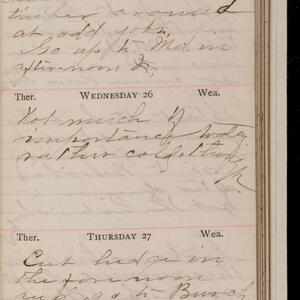 tinker around
at odd jobs.
Go up to Md. in
afternoon &.
Ther. WEDNESDAY 26 Wea.
Not much of
importance today
rather cold, thing
Ther. THURSDAY 27 Wea.
Cut hedge in
the forenoon
to Burch